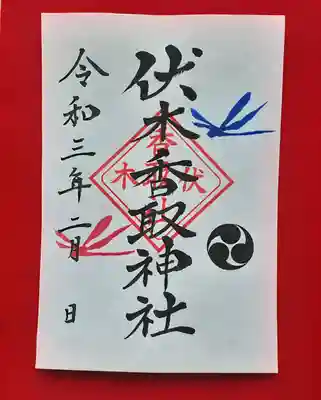 伏木香取神社
令和三年二月 日
伏木
香取